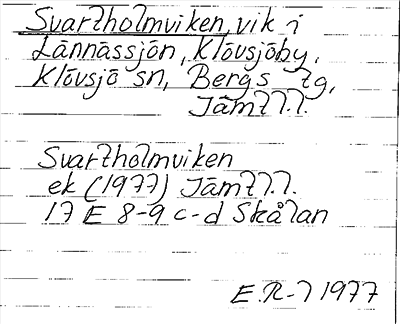 Svartholmviken, vik i
Lännässjön, Klövsjöby,
Klövsjö sn, Bergs tg,
Jämtl.l.
Svartholmviken
ek (1977) Jämtl.l.
17 E 8-9 c-d Skålan
E.R-7 1977